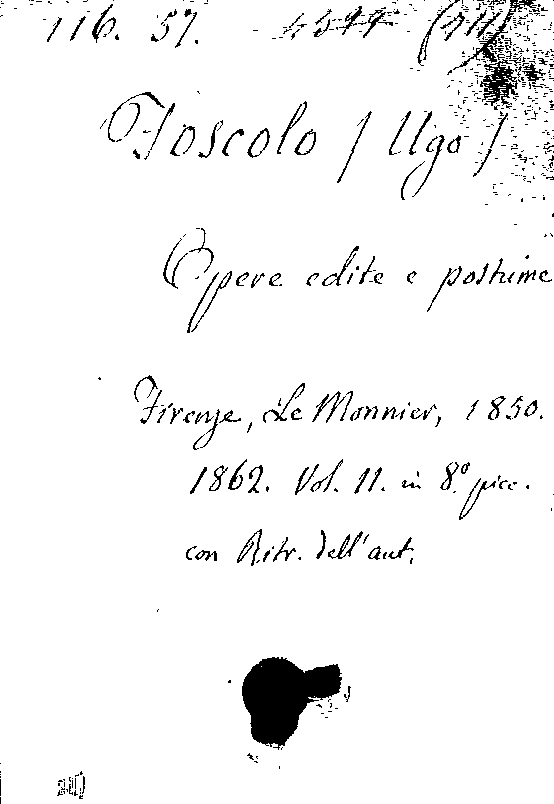 116. 57.
Foscolo / Ugo /
Opere edite e postume
Firenze, Le Monnier, 1850.
1862. Vol. 11. in 8.º picc.
con Ritr. dell'aut.